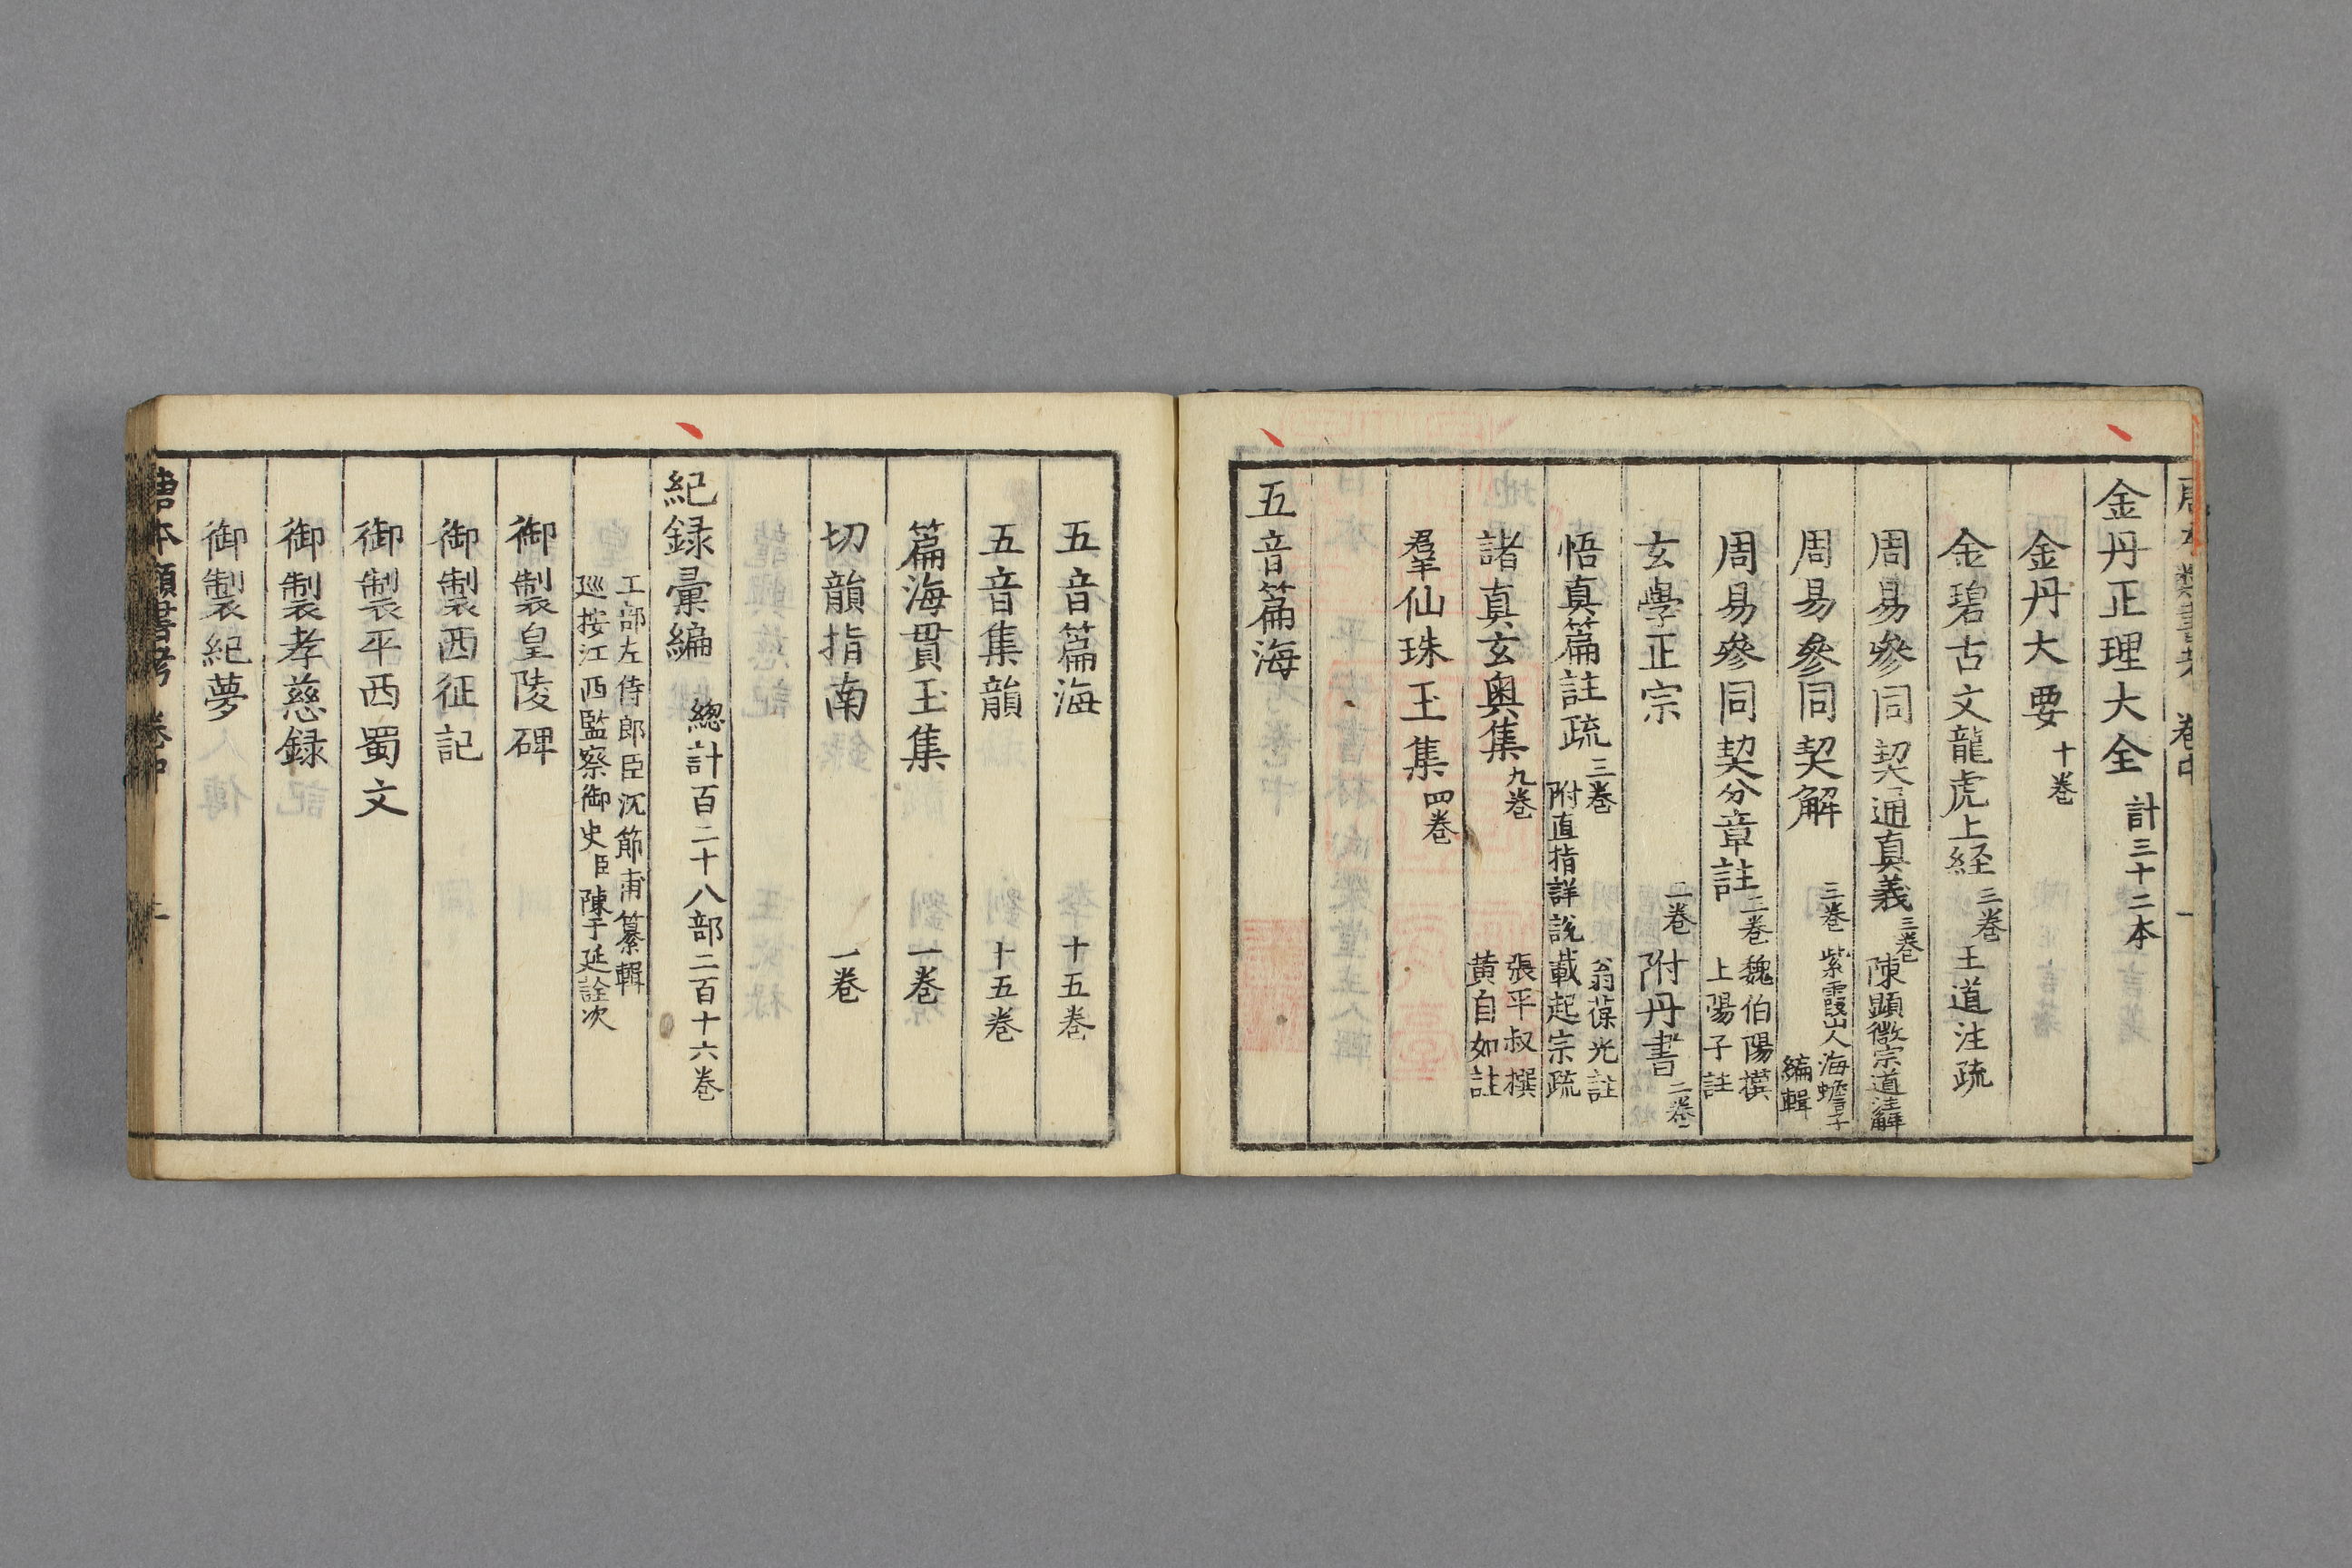 金丹正理大全 計三十二本
金丹大要 十巻
金碧古文龍虎上経 三巻 王道注疏
周易參同契通真義 三巻 陳顕微宗道注解
周易參同契解 三巻 紫霞山人海蟾子
編輯
周易參同契分章註 二巻 魏伯陽撰
上陽子註
玄學正宗 二巻 附丹書 二巻
悟真篇註疏 三巻 翁葆光註
附直指詳説 載起宗疏
諸真玄奥集 九巻 張平叔撰
黄自如註
羣仙珠玉集 四巻
五音篇海
五音篇海 十五巻
五音集韻 十五巻
篇海貫玉集 一巻
切韻指南 一巻
紀録彙編 総計百二十八部二百十六巻
工部左侍郎臣沉節甫纂輯
巡按江西監察御史臣陳于延詮次
御製皇陵碑
御製西征記
御製平西蜀文
御製孝慈録
御製紀夢
唐本類書考 巻中